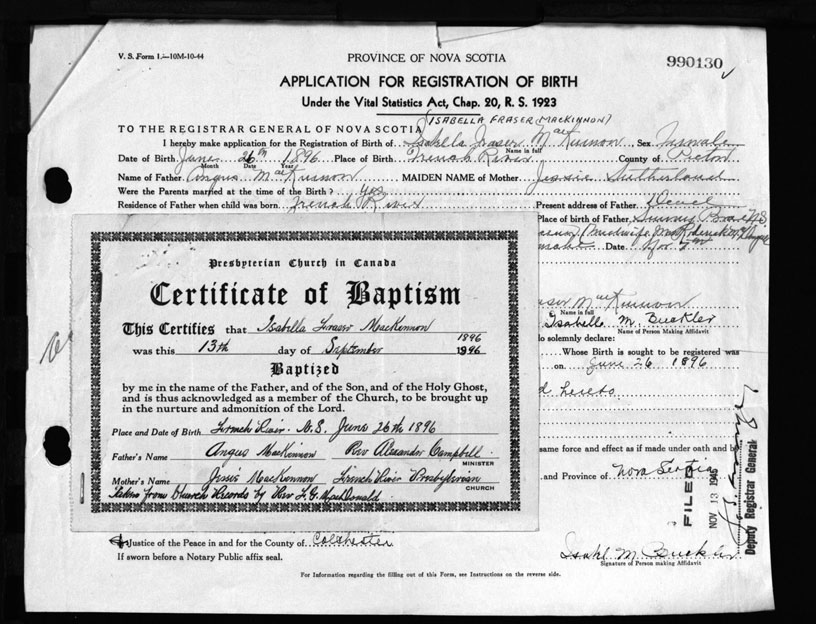 V. S. Form 1.—10M-10-44
PROVINCE OF NOVA SCOTIA
990130
APPLICATION FOR REGISTRATION OF BIRTH
Under the Vital Statistics Act, Chap. 20, R. S. 1923
(ISABELLA FRASER MACKINNON)
TO THE REGISTRAR GENERAL OF NOVA SCOTIA
I hereby make application for the Registration of Birth of Isabella Fraser MacKinnon Sex Female
Name in full
Date of Birth June 26th 1896 Place of Birth French River County of Pictou
Month Date Year
Name of Father Angus MacKinnon MAIDEN NAME of Mother Jessie Sutherland
Were the Parents married at the time of the Birth? yes
Residence of Father when child was born. French River Present address of Father Dead
Place of birth of Father, Sunny Brae N.S.
(Midwife Mrs Roderick
Date.
Presbyterian Church in Canada
Certificate of Baptism
This Certifies that Isabella Fraser MacKinnon
was this 13th day of September 1896 1896
Baptized
by me in the name of the Father, and of the Son, and of the Holy Ghost,
and is thus acknowledged as a member of the Church, to be brought up
in the nurture and admonition of the Lord.
Place and Date of Birth French River N.S. June 26th 1896
Father's Name Angus MacKinnon Rev Alexander Campbell
MINISTER
Mother's Name Jessie MacKinnon French River Presbyterian
CHURCH
Taken from Church Records by Rev F. G. MacDonald.
Fraser MacKinnon
Name in full
Isabella M. Buckler
Name of Person Making Affidavit
do solemnly declare:
Whose Birth is sought to be registered was
on June 26 1896
d hereto
same force and effect as if made under oath and be
and Province of Nova Scotia
FILED
NOV 13 1945
Deputy Registrar General
Justice of the Peace in and for the County of Colchester
If sworn before a Notary Public affix seal.
Isabel M. Buckler
Signature of Person making Affidavit
For Information regarding the filling out of this Form, see Instructions on the reverse side.